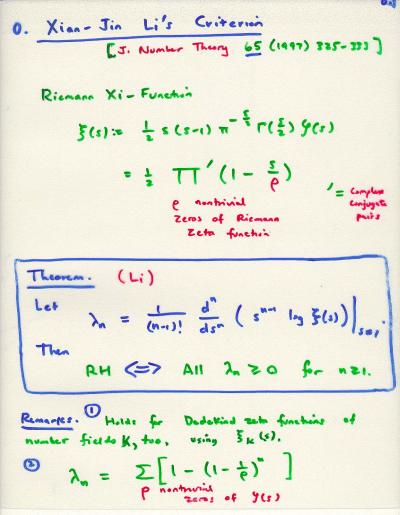 0. Xian-Jin Li's Criterion
[J. Number Theory 65 (1997) 325-333]
Riemann Xi-Function
ξ(s) := 1/2 s(s-1) π^{-s/2} Γ(s/2) ζ(s)
= 1/2 ∏' (1 - s/ρ)
ρ nontrivial
zeros of Riemann
zeta function
' = complex
conjugate
pairs
Theorem. (Li)
Let
λ_n = 1/(n-1)! d^n/ds^n ( s^{n-1} log ξ(s) ) |_{s=1}.
Then
RH <=> All λ_n ≥ 0 for n ≥ 1.
Remarks. ① Holds for Dedekind zeta functions of
number fields K, too, using ξ_K(s).
② λ_n = Σ [ 1 - (1 - 1/ρ)^n ]
ρ nontrivial
zeros of ζ(s)